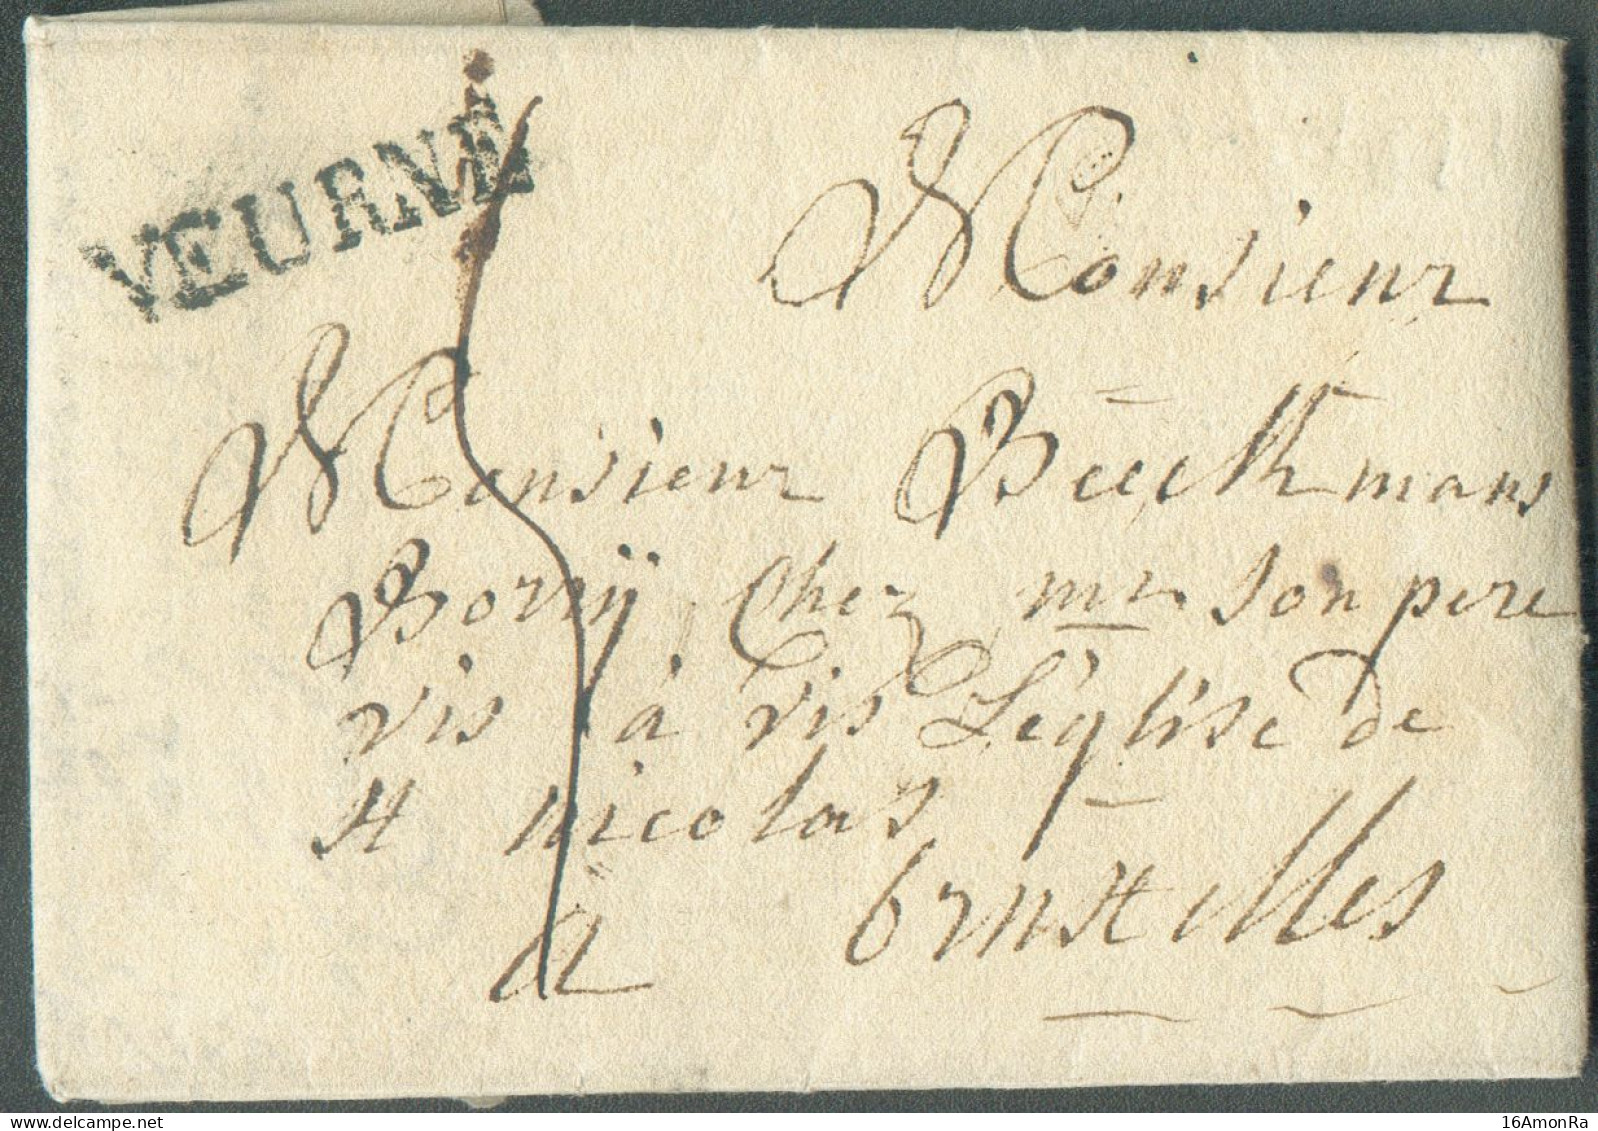 VEURNE
Monsieur
Monsieur Beeckmans
Borrij Chez mr son pere
vis à vis L'église de
st nicolas
a brusselles
16AmonRa